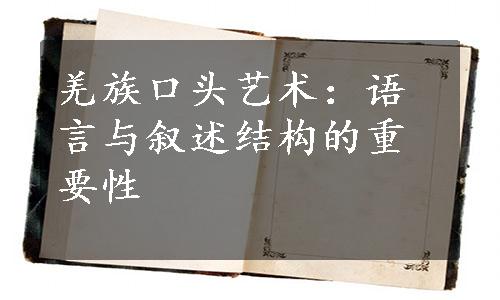 羌族口头艺术：语
言与叙述结构的重
要性